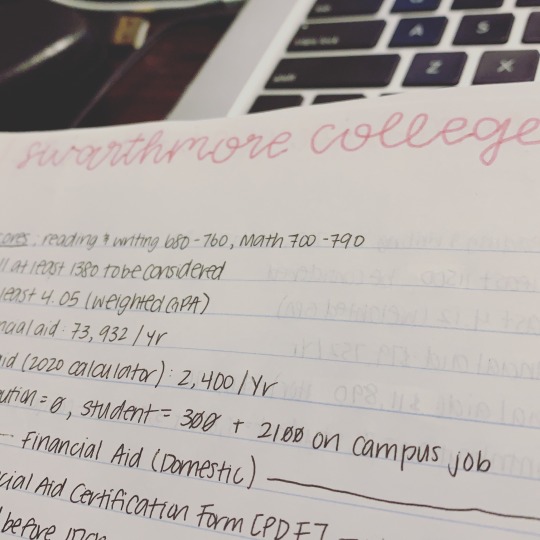 A S
Z X
swarthmore college
ores: reading & writing 680-760, Math 700-790
ll at least 1380 to be considered
least 4.05 (weighted GPA)
ncial aid: 73,932/yr
aid (2020 calculator): 2,400/Yr
ution = 0, student = 300 + 2100 on campus job
Financial Aid (Domestic)
cial Aid Certification Form [PDF]
before